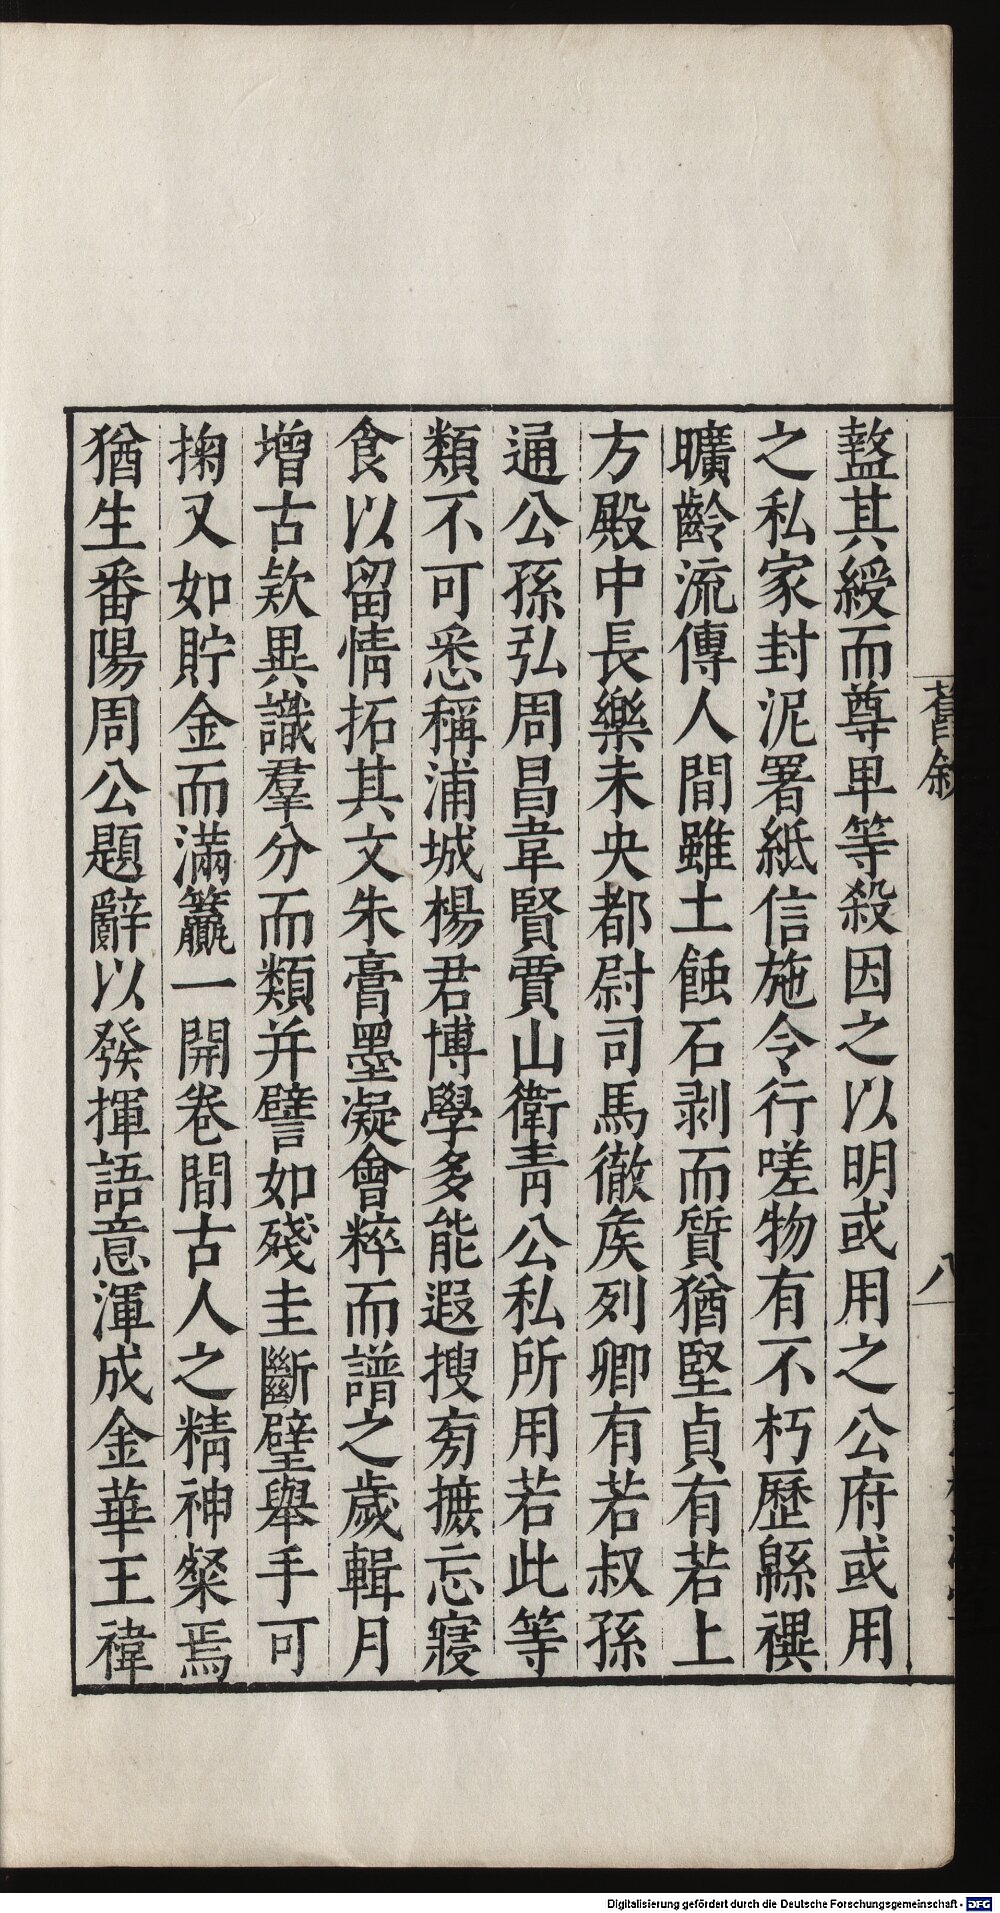 盭其綬而尊卑等殺因之以明或用之公府或用
之私家封泥署紙信施令行嗟物有不朽歷緜禩
曠齡流傳人間雖土蝕石剥而質猶堅貞有若上
方殿中長樂未央都尉司馬徹矦列卿有若叔孫
通公孫弘周昌韋賢賈山衛青公私所用若此等
類不可悉稱浦城楊君博學多能遐搜旁摭忘寢
食以留情拓其文朱膏墨凝會粹而譜之歲輯月
增古欵異識羣分而類并譬如殘圭斷璧舉手可
掬又如貯金而滿籯一開卷間古人之精神粲焉
猶生番陽周公題辭以發揮語意渾成金華王禕
舊敘
八
Digitalisierung gefördert durch die Deutsche Forschungsgemeinschaft - DFG